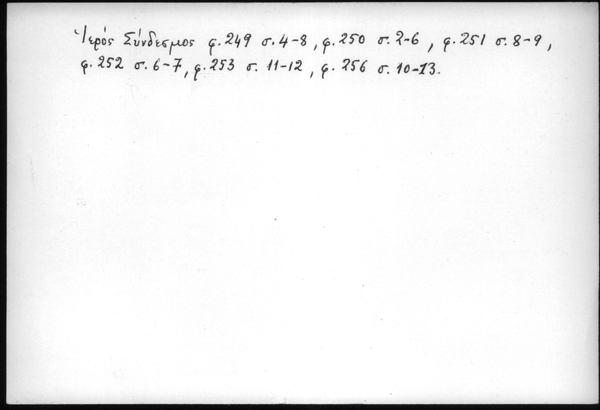 Ἱερός Σύνδεσμος φ.249 σ.4-8, φ.250 σ.2-6, φ.251 σ.8-9,
φ.252 σ.6-7, φ.253 σ.11-12, φ.256 σ.10-13.